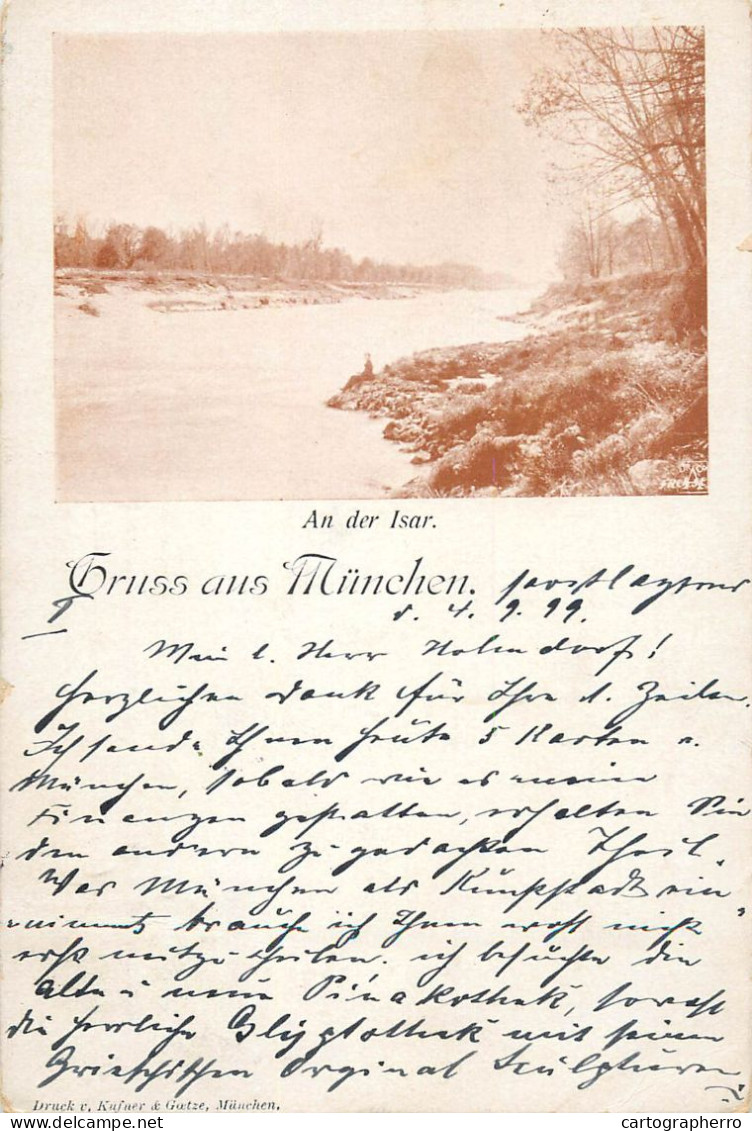 An der Isar.
Gruss aus München.
d. 4. 9. 99.
Mein l. Herr
Herzlichen Dank für Ihre l. Zeilen.
Ich sende Ihnen heute 5 Karten v.
München, sobald wie es meine
Finanzen gestatten, erhalten Sie
den andern zu gedachten Theil.
Was München als Kunststadt ein-
nimmt brauch ich Ihnen wohl nicht
erst mitzutheilen. ich besuchte die
Alte u neue Pinakothek, sowohl
die herrliche Glyptothek mit seinen
Griechischen Orginal Sculpturen
Druck v. Kufner & Goetze, München.
cartographerro